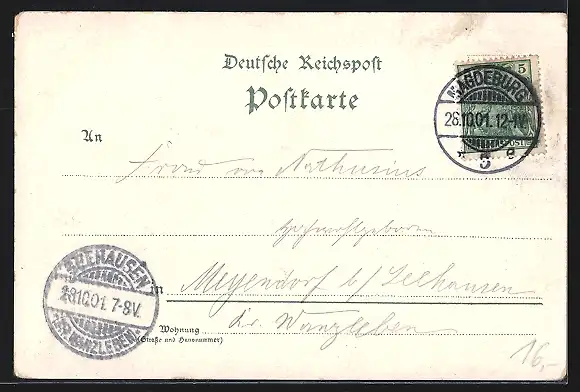 Deutsche Reichspost
Postkarte
5
MAGDEBURG
26.10.01. 12-1N.
* 5 e
An
Frau von Nathusius
Hochwohlgeboren
SEEHAUSEN
28.10.01. 7-8V.
(KR. WANZLEBEN)
in Meyendorf b/Seehausen
Kr. Wanzleben
Wohnung
(Straße und Hausnummer)
16,-